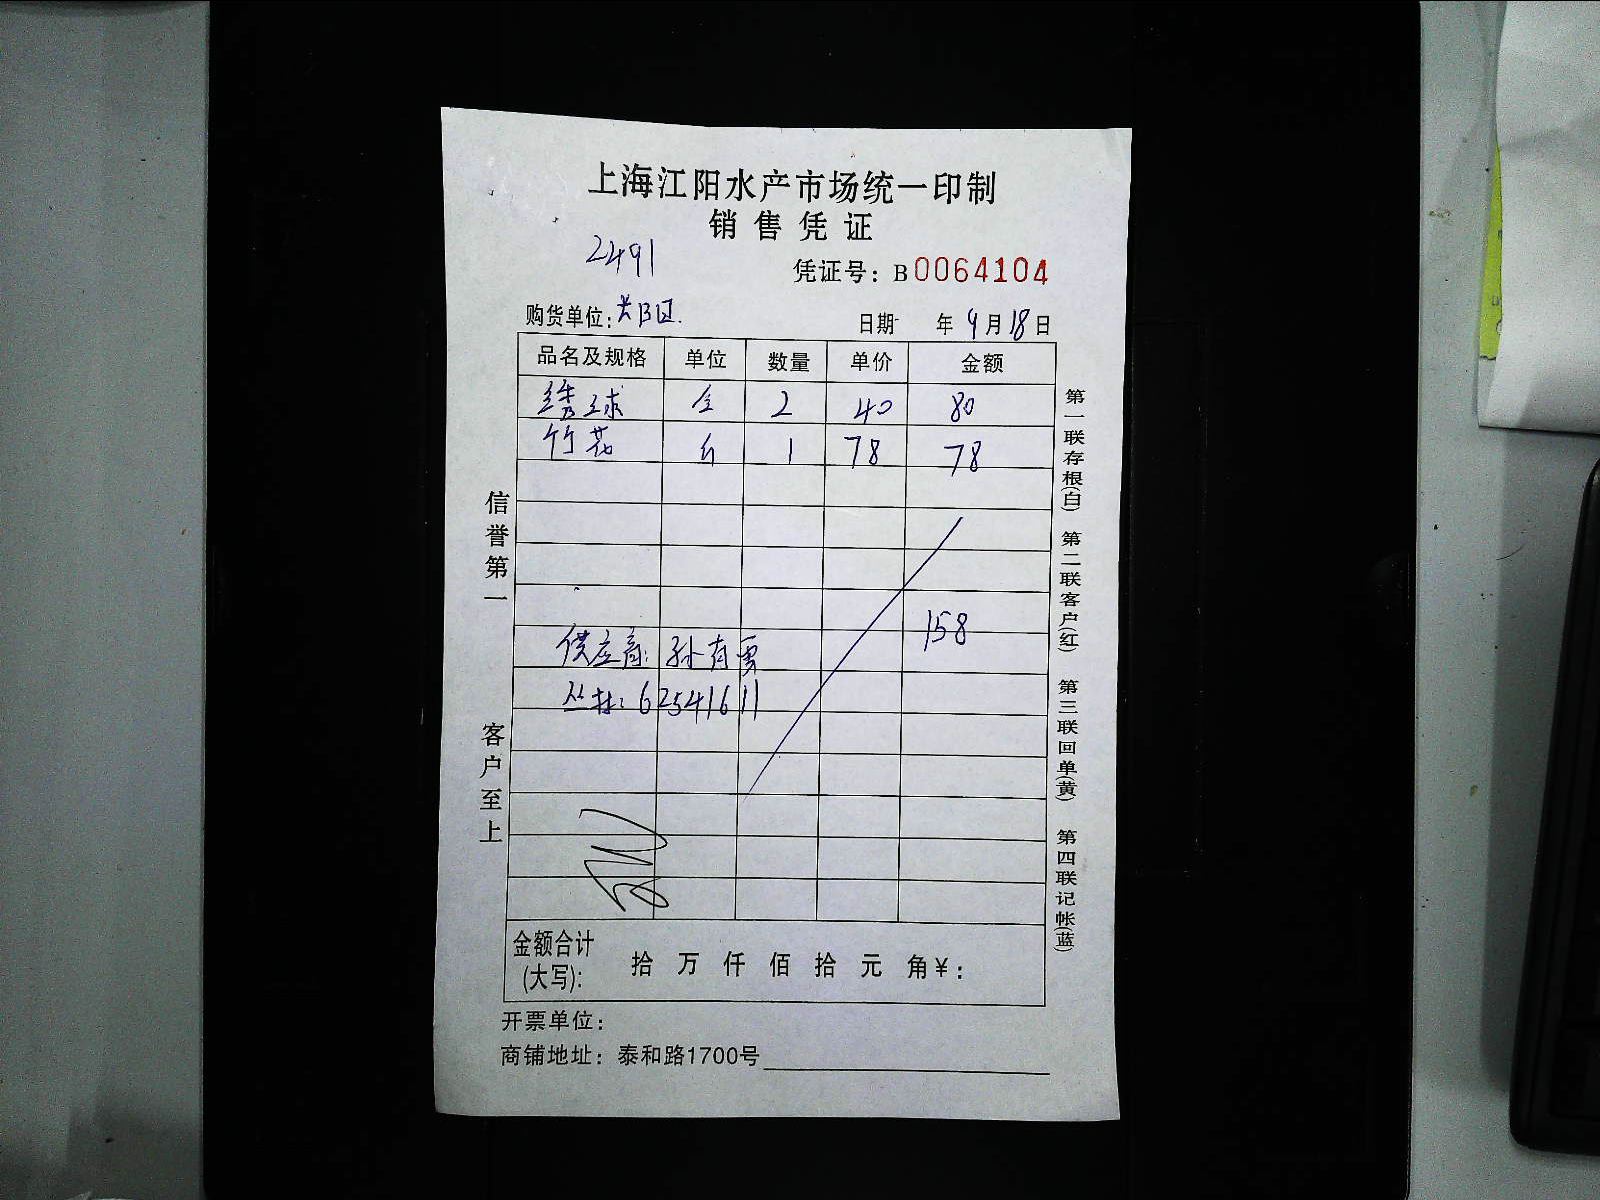 上海江阳水产市场统一印制
销售凭证
2491
凭证号：B0064104
购货单位：
日期 年 9月18日
品名及规格 单位 数量 单价 金额
绣球 2 40 80
竹花 斤 1 78 78
158
供应商：孙有勇
丛林：62541611
信誉第一
客户至上
第一联存根(白) 第二联客户(红) 第三联回单(黄) 第四联记帐(蓝)
金额合计
(大写): 拾 万 仟 佰 拾 元 角 ¥:
开票单位：
商铺地址：泰和路1700号